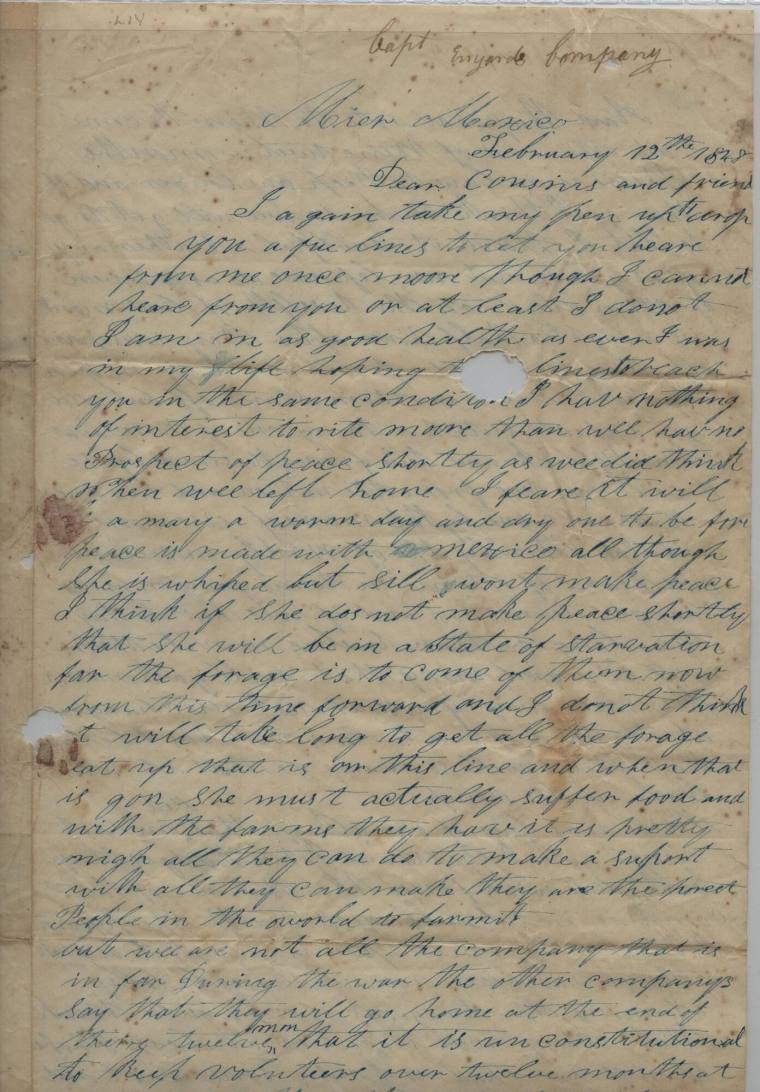 Capt Enyards Company
Mier Mexico
February 12th 1848
Dear Cousins and friend
I a gain take my pen up to drop
you a fue lines to let you heare
from me once moore though I cannot
heare from you or at least I donot
I am in as good health as ever I was
in my life hoping lines to reach
you in the same condition I hav nothing
of interest to rite moore than wee hav no
Prospect of peace shortly as wee did think
when wee left home I feare it will
a mary a warm day and dry one to be fore
peace is made with mexico all though
she is whiped but sill wont make peace
I think if she dos not make peace shortly
that she will be in a State of starvation
for the forage is to come of them now
from this time forward and I donot think
t will take long to get all the forage
eat up that is on this line and when that
is gon she must actually suffer food and
with the farms they hav it is pretty
nigh all they can do to make a suport
with all they can make they are the porest
People in the world to farmit
but wee are not all the company that is
in for During the war the other companys
say that they will go home at the end of
there twelve mm that it is un constitutional
to keep volunteers over twelve months at